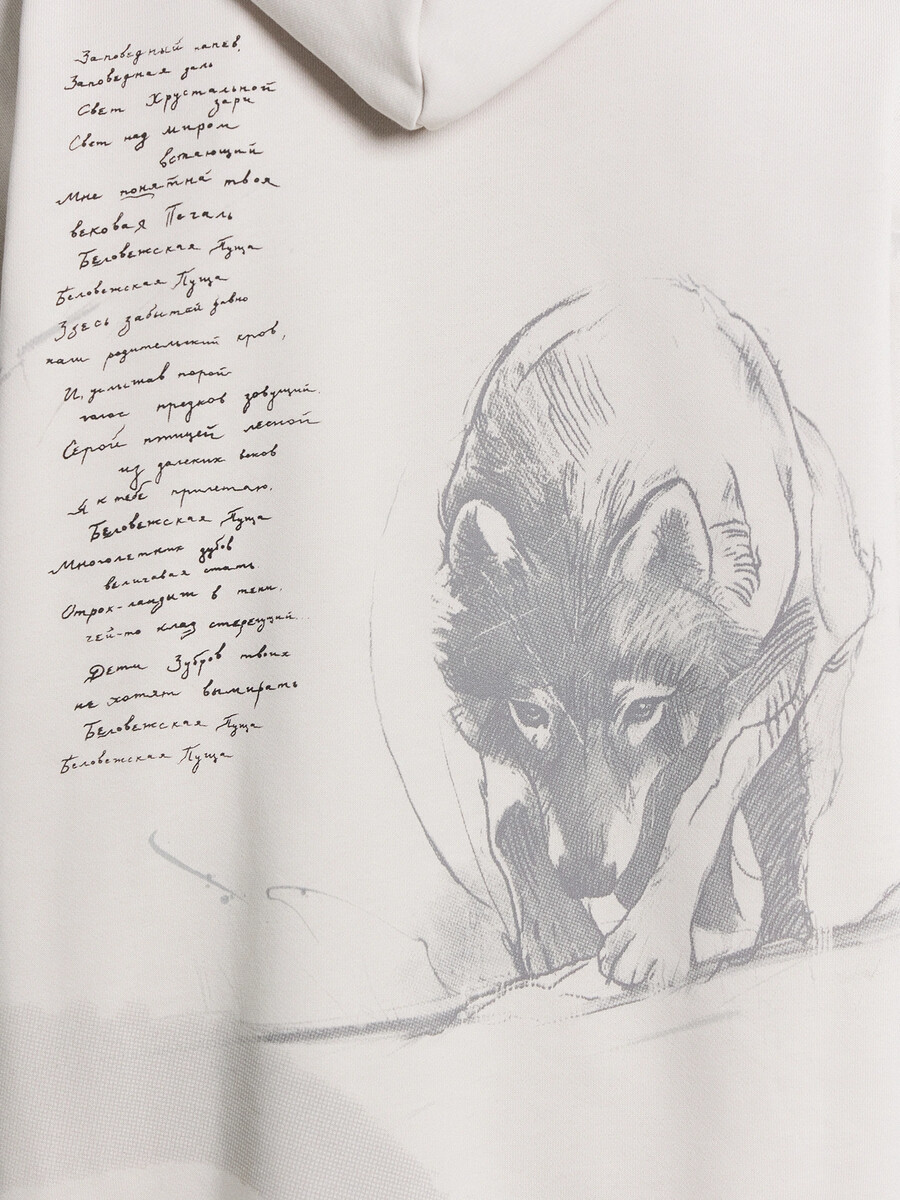 Заповедный напев,
Заповедная даль
Свет Хрустальной
зари
Свет над миром
встающий
Мне понятна твоя
вековая Печаль
Беловежская Пуща
Беловежская Пуща
Здесь забытый давно
наш родительский кров,
И, услышав порой
голос предков зовущий.
Серой птицей лесной
из далеких веков
Я к тебе прилетаю,
Беловежская Пуща
Многолетних дубов
величавая стать.
Отрок-ландыш в тени,
чей-то клад стерегущий...
Дети Зубров твоих
не хотят вымирать
Беловежская Пуща
Беловежская Пуща